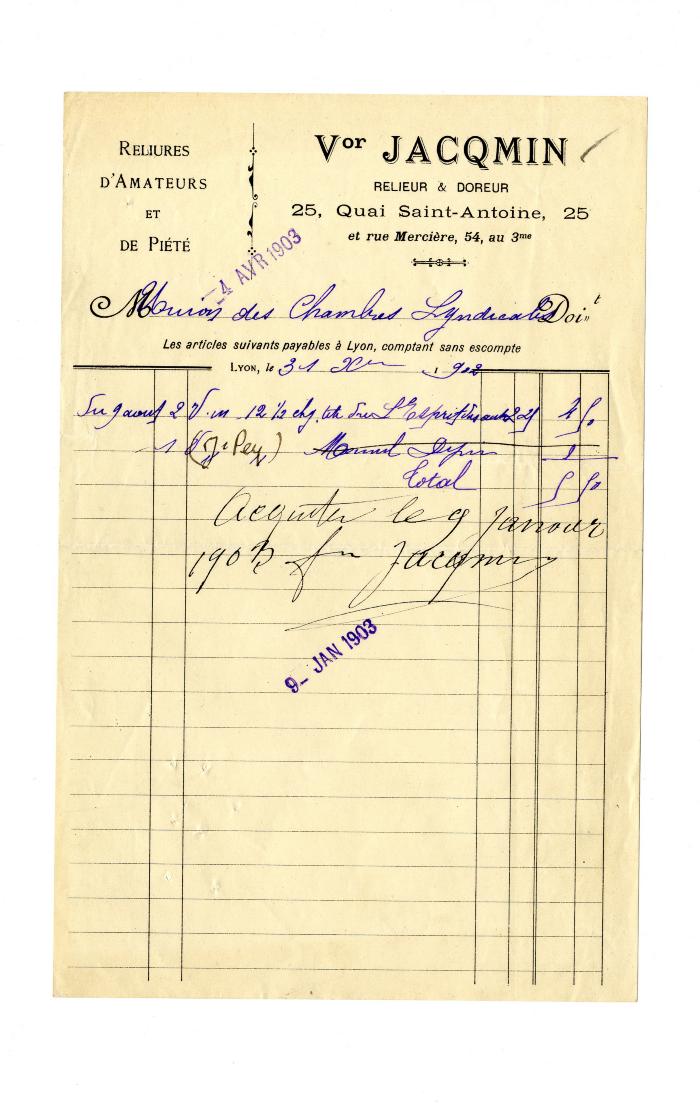 RELIURES
D'AMATEURS
ET
DE PIÉTÉ
Vor JACQMIN
RELIEUR & DOREUR
25, Quai Saint-Antoine, 25
et rue Mercière, 54, au 3me
4 AVR 1903
M Union des Chambres Syndicales Doit
Les articles suivants payables à Lyon, comptant sans escompte
Lyon, le 31 Xbre 1902
Du 9 aout 2 V. in 12 ½ chg. 2 25 4 50
1 d (Je Pey) 1
Total 5 50
Acquitter le 9 Janvier
1903 Jacqmin
9 JAN 1903